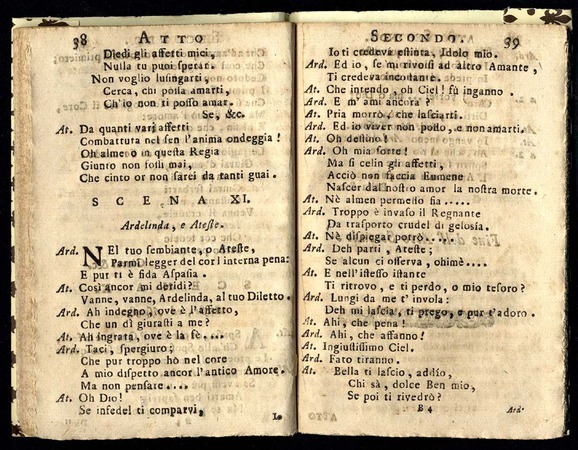 38
ATTO
Diedi gli affetti miei,
Nulla tu puoi sperar.
Non voglio lusingarti,
Cerca, chi possa amarti,
Ch'io non ti posso amar.
Se, &c.
At. Da quanti varj affetti
Combattuta nel sen l'anima ondeggia!
Oh almeno in questa Regia
Giunto non fossi mai,
Che cinto or non farei da tanti guai.
SCENA XI.
Ardelinda, e Ateste.
Ard. NEl tuo sembiante, o Ateste,
Parmi legger del cor l interna pena:
E pur ti è fida Aspasia.
At. Così ancor mi deridi?
Vanne, vanne, Ardelinda, al tuo Diletto.
Ard. Ah indegno, ove è l'affetto,
Che un dì giurasti a me?
At. Ah ingrata, ove è la fè....
Ard. Taci, spergiuro;
Che pur troppo hò nel core
A mio dispetto ancor l'antico Amore.
Ma non pensare....
At. Oh Dio!
Se infedel ti comparvi,
Io
SECONDO.
39
Io ti credeva estinta, Idolo mio.
Ard. Ed io, se mi rivolsi ad altro Amante,
Ti credeva incostante.
At. Che intendo, oh Ciel! fù inganno.
Ard. E m'ami ancora?
At. Pria morrò, che lasciarti.
Ard. Ed io viver non posso, e non amarti.
At. Oh destino!
Ard. Oh mia sorte!
Ma si celin gli affetti,
Acciò non faccia Eumene
Nascer dal nostro amor la nostra morte.
At. Nè almen permesso fia.....
Ard. Troppo è invaso il Regnante
Da trasporto crudel di gelosia.
At. Nè dispiegar potrò.....
Ard. Deh parti, Ateste;
Se alcun ci osserva, ohimè....
At. E nell'istesso istante
Ti ritrovo, e ti perdo, o mio tesoro?
Ard. Lungi da me t'invola:
Deh mi lascia, ti prego, e pur t'adoro.
At. Ahi, che pena!
Ard. Ahi, che affanno!
At. Ingiustissimo Ciel.
Ard. Fato tiranno.
At. Bella ti lascio, addio,
Chi sà, dolce Ben mio,
Se poi ti rivedrò?
B 4
Ard.